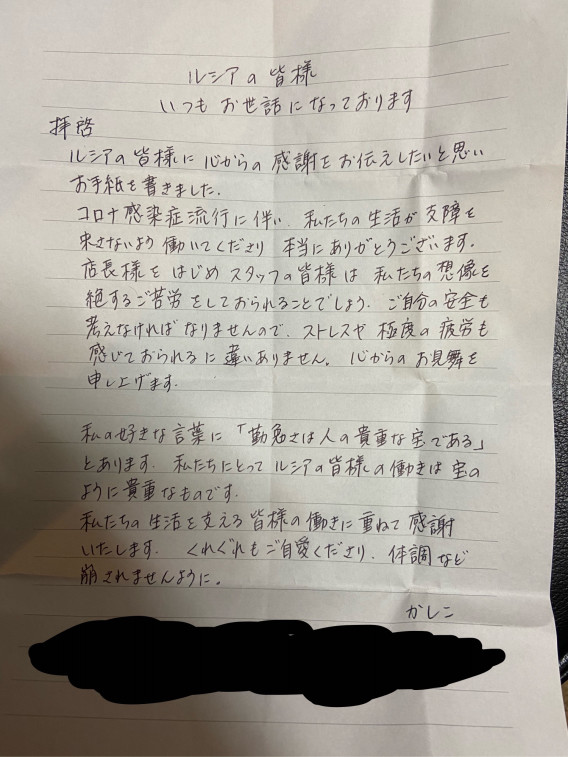 ルシアの皆様
いつもお世話になっております
拝啓
ルシアの皆様に心からの感謝をお伝えしたいと思い
お手紙を書きました.
コロナ感染症流行に伴い、私たちの生活が支障を
来さないよう働いてくださり 本当にありがとうございます.
店長様をはじめスタッフの皆様は 私たちの想像を
絶するご苦労をしておられることでしょう. ご自分の安全も
考えなければなりませんので、ストレスや極度の疲労も
感じておられるに違いありません。心からのお見舞を
申し上げます.
私の好きな言葉に「勤勉さは人の貴重な宝である」
とあります. 私たちにとってルシアの皆様の働きは宝の
ように貴重なものです.
私たちの生活を支える皆様の働きに重ねて感謝
いたします. くれぐれもご自愛くださり. 体調など
崩されませんように。
かしこ